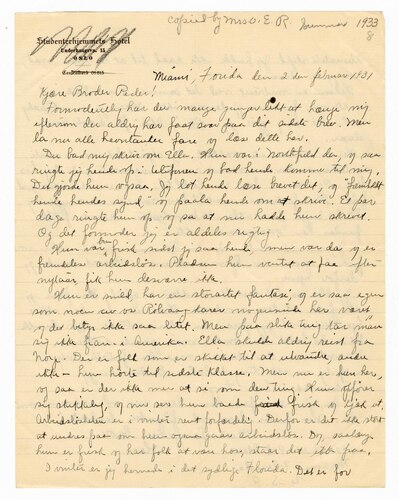 copied by Mrs O. E. R summer 1933
8
Studenterhjemmets Hotel
Underhaugsvn. 15
OSLO
Miami, Florida den 2den februar 1931
Kjære Broder Peder!
Formodentlig har du mange ganger lidt at hænge mig
eftersom du aldrig har faat svar paa det sidste brev. Men
la nu alle hevntanker fare og læs dette her.
Du bad mig skrive om Ella. Hun var i Northfield da, og saa
ringte jeg hende op i telefonen og bad hende komme til mig.
Det gjorde hun ogsaa. Jeg lot hende læse brevet dit, og
hende hendes synd og paala hende om at skrive. Et par
dage ringte hun op og sa at nu hadde hun skrevet.
Og det formoder jeg er aldeles rigtig.
Hun var frisk sidst jeg saa hende, men var da og er
fremdeles arbeidsløs. Pladsen hun ventet at faa efter
nytaar fik hun desværre ikke.
Hun er snild, har en storartet fantasi, og er saa egen
som noen av os Rølvaag'er nogensinde har været
og det betyr ikke saa litet. Men paa slike ting tar man
sig ikke fram i Amerika. Ella skulde aldrig reist fra
Norge. Der er folk som er skikket til at utvandre, andre
ikke – hun hørte til sidste klasse. Men nu er hun her,
og saa er der ikke mer at si om den ting. Hun opfører
sig skikkelig, og nu ser hun baade frisk og kjæk ut.
Arbeidsløsheten er i vinter rent forfærdelig. Derfor er det ikke stort
at undres paa om hun ogsaa gaar arbeidsløs. Og, saalænge
hun er frisk og har folk at være hos, staar det ikke paa.
I vinter er jeg hernede i det sydlige Florida. Det er for